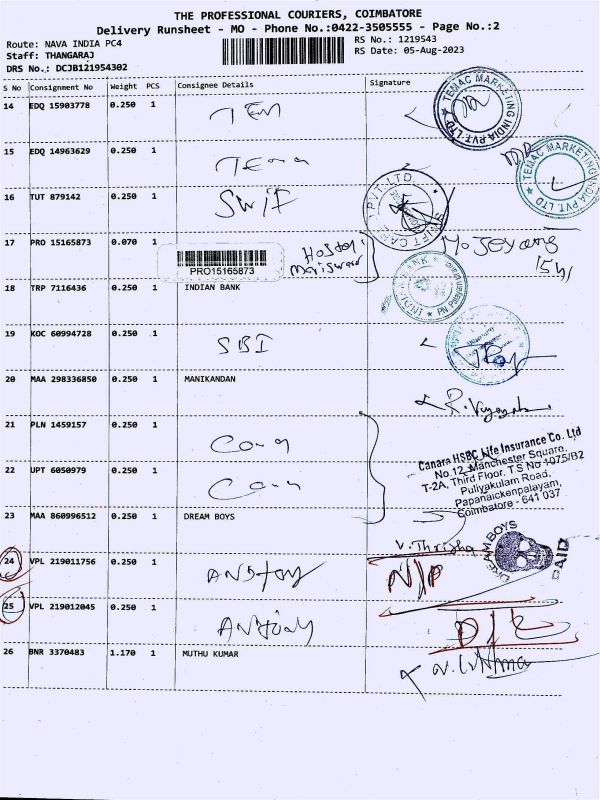 THE PROFESSIONAL COURIERS, COIMBATORE
Delivery Runsheet - MO - Phone No.:0422-3505555 - Page No.:2
Route: NAVA INDIA PC4
Staff: THANGARAJ
DRS No.: DCJB121954302
RS No.: 1219543
RS Date: 05-Aug-2023
S No Consignment No Weight PCS Consignee Details Signature
14 EDQ 15903778 0.250 1
TEMAC MARKETING INDIA PVT. LTD
15 EDQ 14963629 0.250 1
TEMAC MARKETING INDIA PVT. LTD
16 TUT 879142 0.250 1 SWIF
17 PRO 15165873 0.070 1
PRO15165873
18 TRP 7116436 0.250 1 INDIAN BANK
19 KOC 60994728 0.250 1 SBI
20 MAA 298336850 0.250 1 MANIKANDAN
21 PLN 1459157 0.250 1
22 UPT 6050979 0.250 1
Canara HSBC Life Insurance Co. Ltd
No.12, Manchester Square,
T-2A, Third Floor, T.S No 1075/B2
Puliyakulam Road,
Papanaickenpalayam,
Coimbatore - 641 037
23 MAA 860996512 0.250 1 DREAM BOYS
V. Thrisha
DREAM BOYS PAID
24 VPL 219011756 0.250 1
25 VPL 219012045 0.250 1
26 BNR 3370483 1.170 1 MUTHU KUMAR